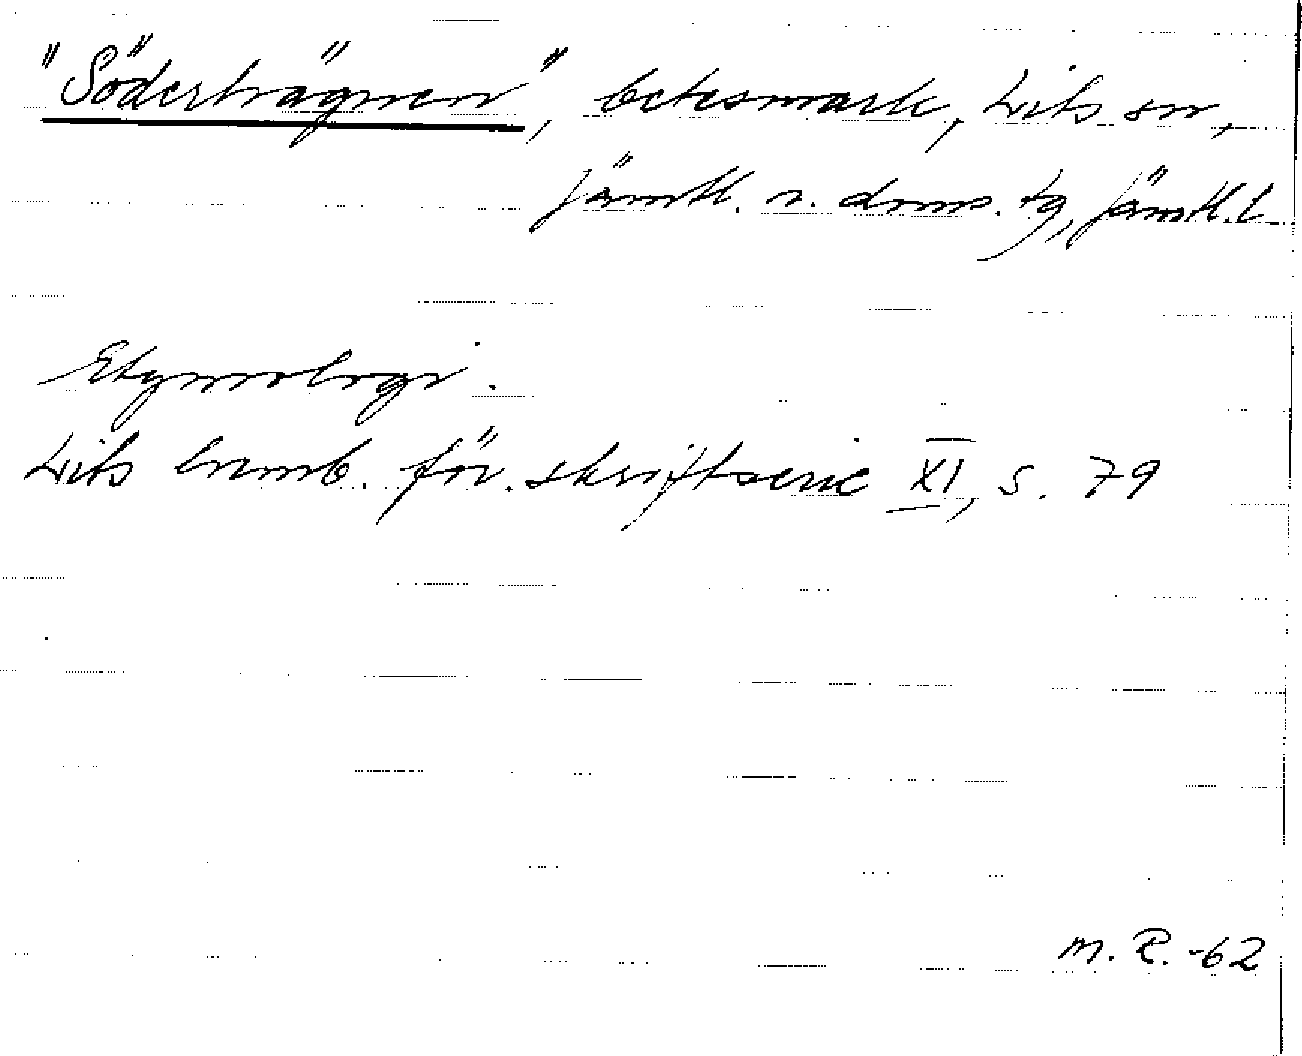 "Söderhägnen", betesmark, Lits sn,
Jämtl. n. doms. tg, Jämtl. l
Etymologi.
Lits hemb. för. skriftserie XI, s. 79
M. R. -62